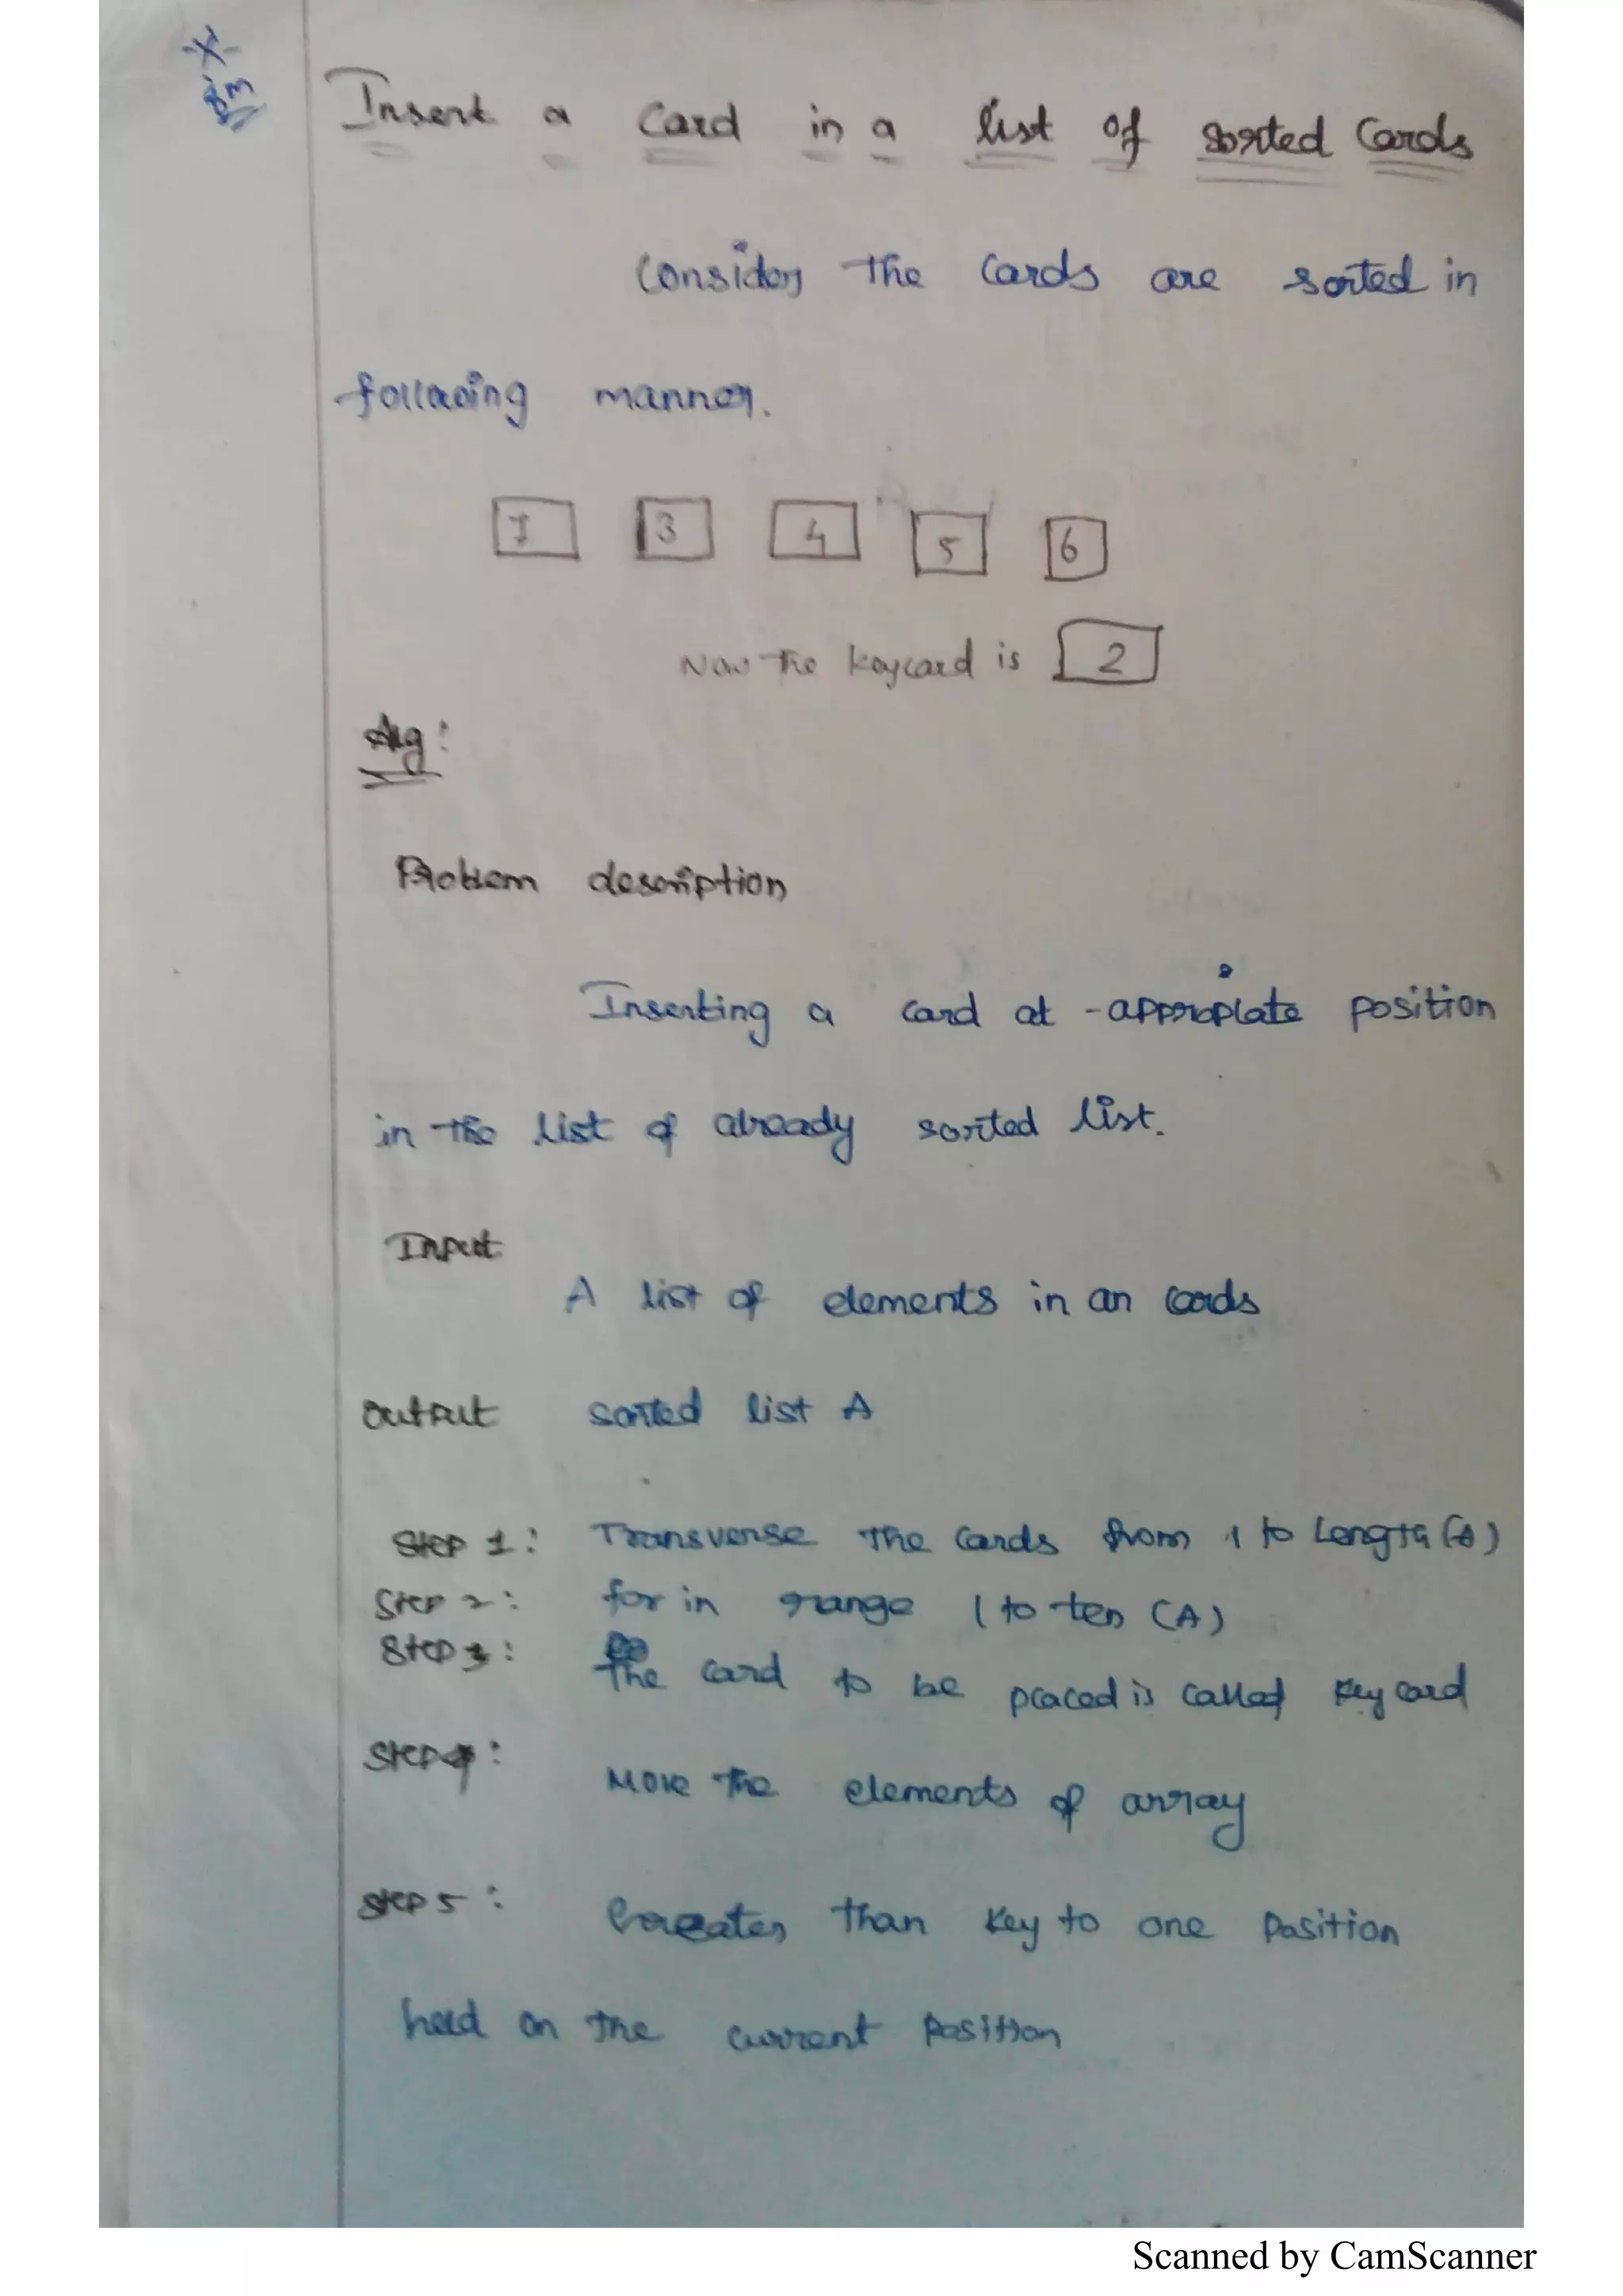 Insert a Card in a list of sorted Cards
Consider the Cards are sorted in
following manner.
1 3 4 5 6
Now the keycard is 2
Alg:
Problem description
Inserting a card at - appropiate position
in the list of already sorted list.
Input
A list of elements in an cards
Output sorted list A
Step 1: Transverse the Cards from 1 to Length (A)
Step 2: for in range 1 to len (A)
Step 3: The card to be placed is called key card
Step 4: Move the elements of array
Step 5: Greater than key to one position
head on the current position
Scanned by CamScanner